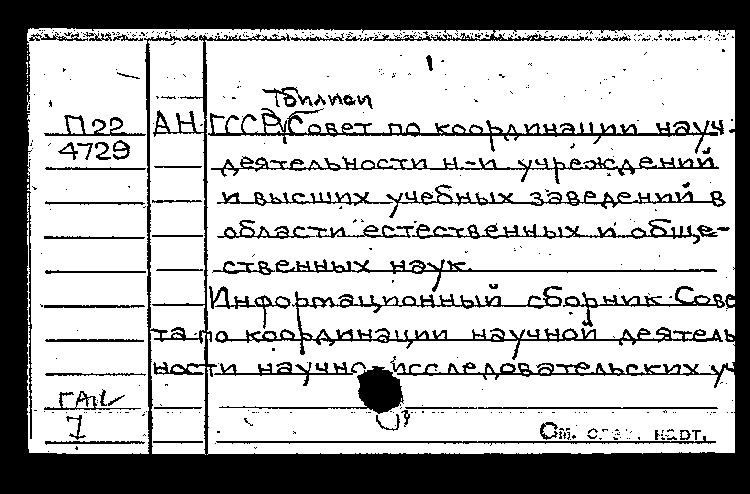 Тбилиси
П22 АН ГССР, Совет по координации науч.
4729 деятельности н-и учреждений
и высших учебных заведений в
области естественных и обще-
ственных наук.
Информационный сборник Сове
та по координации научной деятель
ности научно-исследовательских уч
1
См. след. карт.